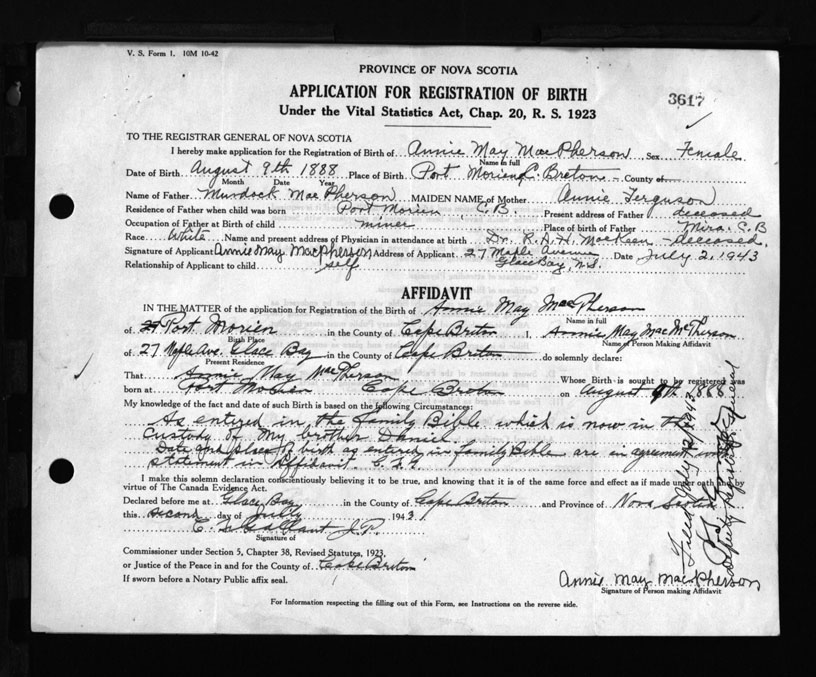 V. S. Form 1. 10M 10-42
PROVINCE OF NOVA SCOTIA
APPLICATION FOR REGISTRATION OF BIRTH
3617
Under the Vital Statistics Act, Chap. 20, R. S. 1923
TO THE REGISTRAR GENERAL OF NOVA SCOTIA
I hereby make application for the Registration of Birth of Annie May MacPherson Sex Female
Name in full
Date of Birth August 9th 1888 Place of Birth Port Morien, C. Breton County of
Month Date Year
Name of Father Murdock MacPherson MAIDEN NAME of Mother Annie Ferguson
Residence of Father when child was born Port Morien C.B. Present address of Father deceased
Occupation of Father at Birth of child miner Place of birth of Father Mira. C.B
Race White Name and present address of Physician in attendance at birth Dr. R.A.H. MacKeen - deceased.
Signature of Applicant Annie May MacPherson Address of Applicant 27 Maple Avenue Date July 2, 1943
Relationship of Applicant to child self Glace Bay, N.S.
AFFIDAVIT
IN THE MATTER of the application for Registration of the Birth of Annie May MacPherson
Name in full
of Port Morien in the County of Cape Briton I, Annie May Mac
Birth Place Name of Person Making Affidavit
of 27 Ave. Glace Bay in the County of Cape Briton do solemnly declare:
Present Residence
That Annie May MacPherson Whose Birth is sought to be registered was
born at Port Morien Cape Breton on August 9th
My knowledge of the fact and date of such Birth is based on the following Circumstances:
As entered in the family Bible which is now in the
Custody of My brother Daniel.
Date and place of birth as entered in family Bible are in agreement with
statement in Affidavit.
I make this solemn declaration conscientiously believing it to be true, and knowing that it is of the same force and effect as if made under oath and by
virtue of The Canada Evidence Act.
Declared before me at Glace Bay in the County of Cape Briton and Province of Nova Scotia
this second day of July 1943
J.P.
Signature of
Commissioner under Section 5, Chapter 38, Revised Statutes, 1923,
or Justice of the Peace in and for the County of Cape Briton
If sworn before a Notary Public affix seal.
Annie May MacPherson
Signature of Person making Affidavit
For Information respecting the filling out of this Form, see Instructions on the reverse side.
Filed July 12, 1943
Deputy Registrar General